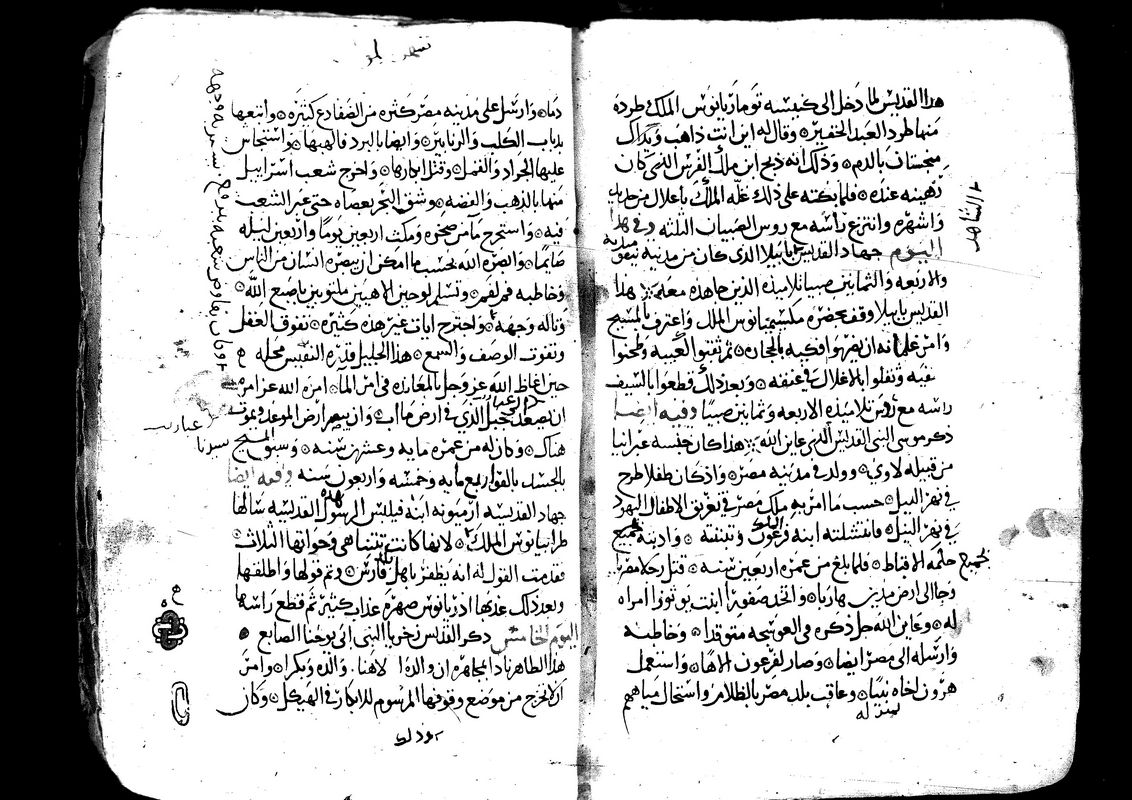 هذا القديس لما دخل الى كنيسه توما زيانوس الملك طرده
منها طرد العبد الحقير٥ وقال له اين انت ذاهب ويداك
منجستان بالدم٥ وذلك انه ذبح ابن ملك الفرس الذي كان
رهينه عنده٥ فلما بكته على ذلك غله الملك باغلال من حديد
واشهره وانتزع راسه مع روس الصبيان الثلثه وفي هذا
اليوم جهاد القديس بابيلا الذي كان من مدينه نيقومديه
والاربعه والثمانين صبيا تلاميذه الذين جاهدو معلمه هذا
القديس بابيلا وقف بحضره مكسيميانوس الملك واعترف بالمسيح
وامر غلمانه ان يضربوا فكيه بالحجاره٥ ثم ثقبوا كعبيه وطحنوا
وثقلوا بالاغلال في عنقه٥ وبعد ذلك قطعوا بالسيف
راسه مع روس تلاميذه الاربعه وثمانين صبيا وفيه ايضا
ذكر موسى النبي القديس الذي عاين الله هذا كان جنسه عبرانيا
من قبيله لاوي٥ وولد في مدينه مصر٥ واذ كان طفلا طرح
في نهر النيل٥ حسب ما امر به ملك مصر في تغريق الاطفال اليهود
في نهر النيل٥ فانتشلته ابنه فرعون الملك وتبنته٥ وادبته بجميع
حكمه الاقباط٥ فلما بلغ من عمره اربعين سنه٥ قتل رجلا مصريا
وجا الى ارض مدين هاربا٥ واتخذ صفورا ابنت يوثور امراه
له٥ وعاين الله جل ذكره في العوسجه متوقدا٥ وخاطبه
وارسله الى مصر ايضا٥ وصار لفرعون الاها٥ واستعمل
هرون اخاه نبيا٥ وعاقب بلد مصر بالظلام واستحال مياههم
بمنزله
دما٥ وارسل على مدينه مصر كثره من الضفادع كثيره٥ واتبعها
بذباب الكلب والزنابير٥ وايضا بالبرد فالهبها٥ واستجاش
عليها الجراد والقمل٥ وقتل ابكارها٥ واخرج شعب اسراييل
منها بالذهب والفضه٥ وشق البحر بعصاه حتى عبر الشعب
فيه٥ واستخرج ما من صخره ومكث اربعين يوما واربعين ليله
صايما٥ وابصره الله بحسب ما امكن ان يبصره انسان من الناس
وخاطبه فم لفم٥ وتسلم لوحين الاهيين مكتوبين باصبع الله٥
وتاله وجهه٥ واجترح ايات غير هذه كثيره٥ تفوق العقل
وتفوت الوصف والسمع٥ هذا الجليل قدره النفيس محله
حين اغاظ الله عز وجل بالمعارضه في امر الما٥ امره الله عز امره
ان يصعد الجبل الذي في ارض ماب٥ وان يبصر ارض الموعد ويموت
هناك٥ وكان له من عمره مايه وعشرين سنه٥ وسبق المسيح
بالجسد بالف واربع مايه وخمسه واربعون سنه وفيه ايضا
جهاد القديسه ارميونه ابنه فيلبس الرسول القديسه هذه سالها
طرايانوس الملك٥ لانها كانت تتنبا هي وخواتها الثلاث٥
فقدمت القول له انه يظفر باهل فارس٥ وتم قولها واطلقها
وبعد ذلك عذبها ادريانوس صهره عذاب كثير ثم قطع راسها
اليوم الخامس ذكر القديس زخريا النبي ابي يوحنا الصابغ٥
هذا الطاهر نادا مجاهره ان والدة الاهنا٥ والده وبكرا٥ وامر
الا تخرج من موضع وقوفها المرسوم للابكار في الهيكل٥ وكان
وذلك